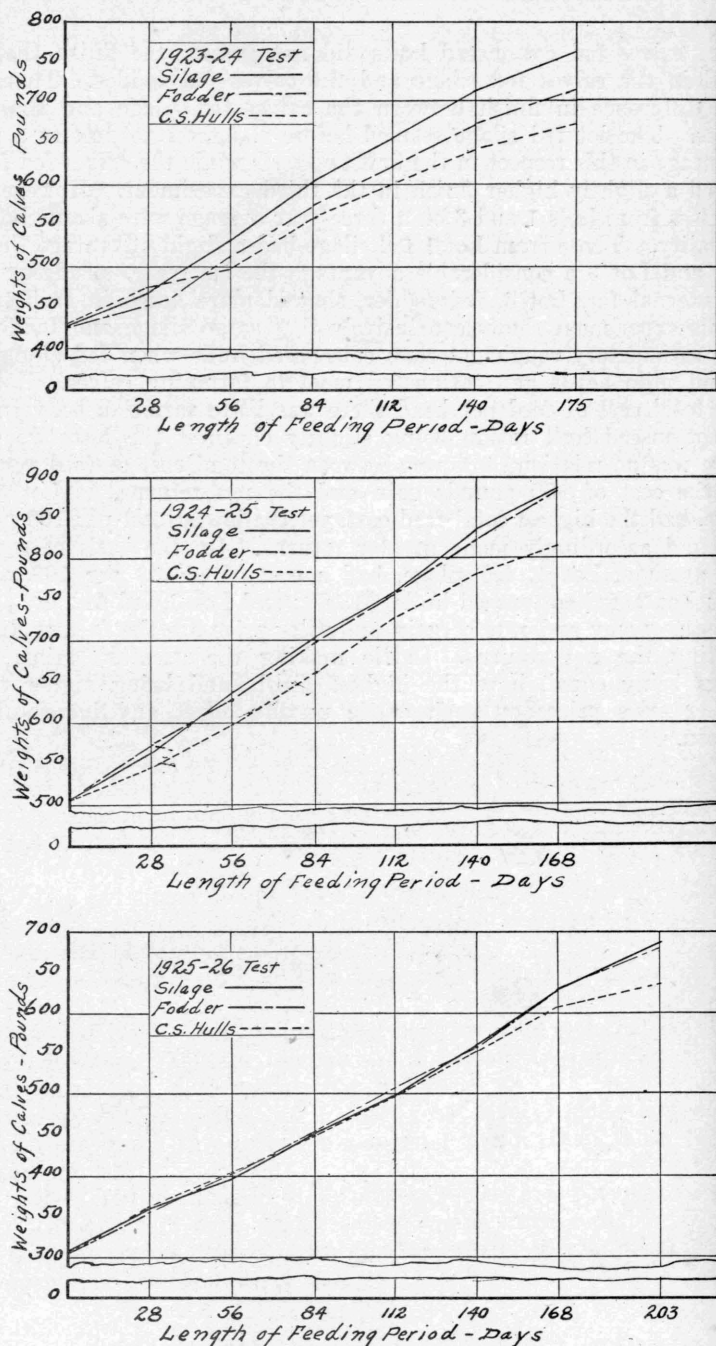 800
50
700
50
600
50
500
50
400
0
Weights of Calves - Pounds
1923-24 Test
Silage
Fodder
C.S. Hulls
28 56 84 112 140 175
Length of Feeding Period - Days
900
50
800
50
700
50
600
50
500
0
Weights of Calves - Pounds
1924-25 Test
Silage
Fodder
C.S. Hulls
28 56 84 112 140 168
Length of Feeding Period - Days
700
50
600
50
500
50
400
50
300
0
Weights of Calves - Pounds
1925-26 Test
Silage
Fodder
C.S. Hulls
28 56 84 112 140 168 203
Length of Feeding Period - Days